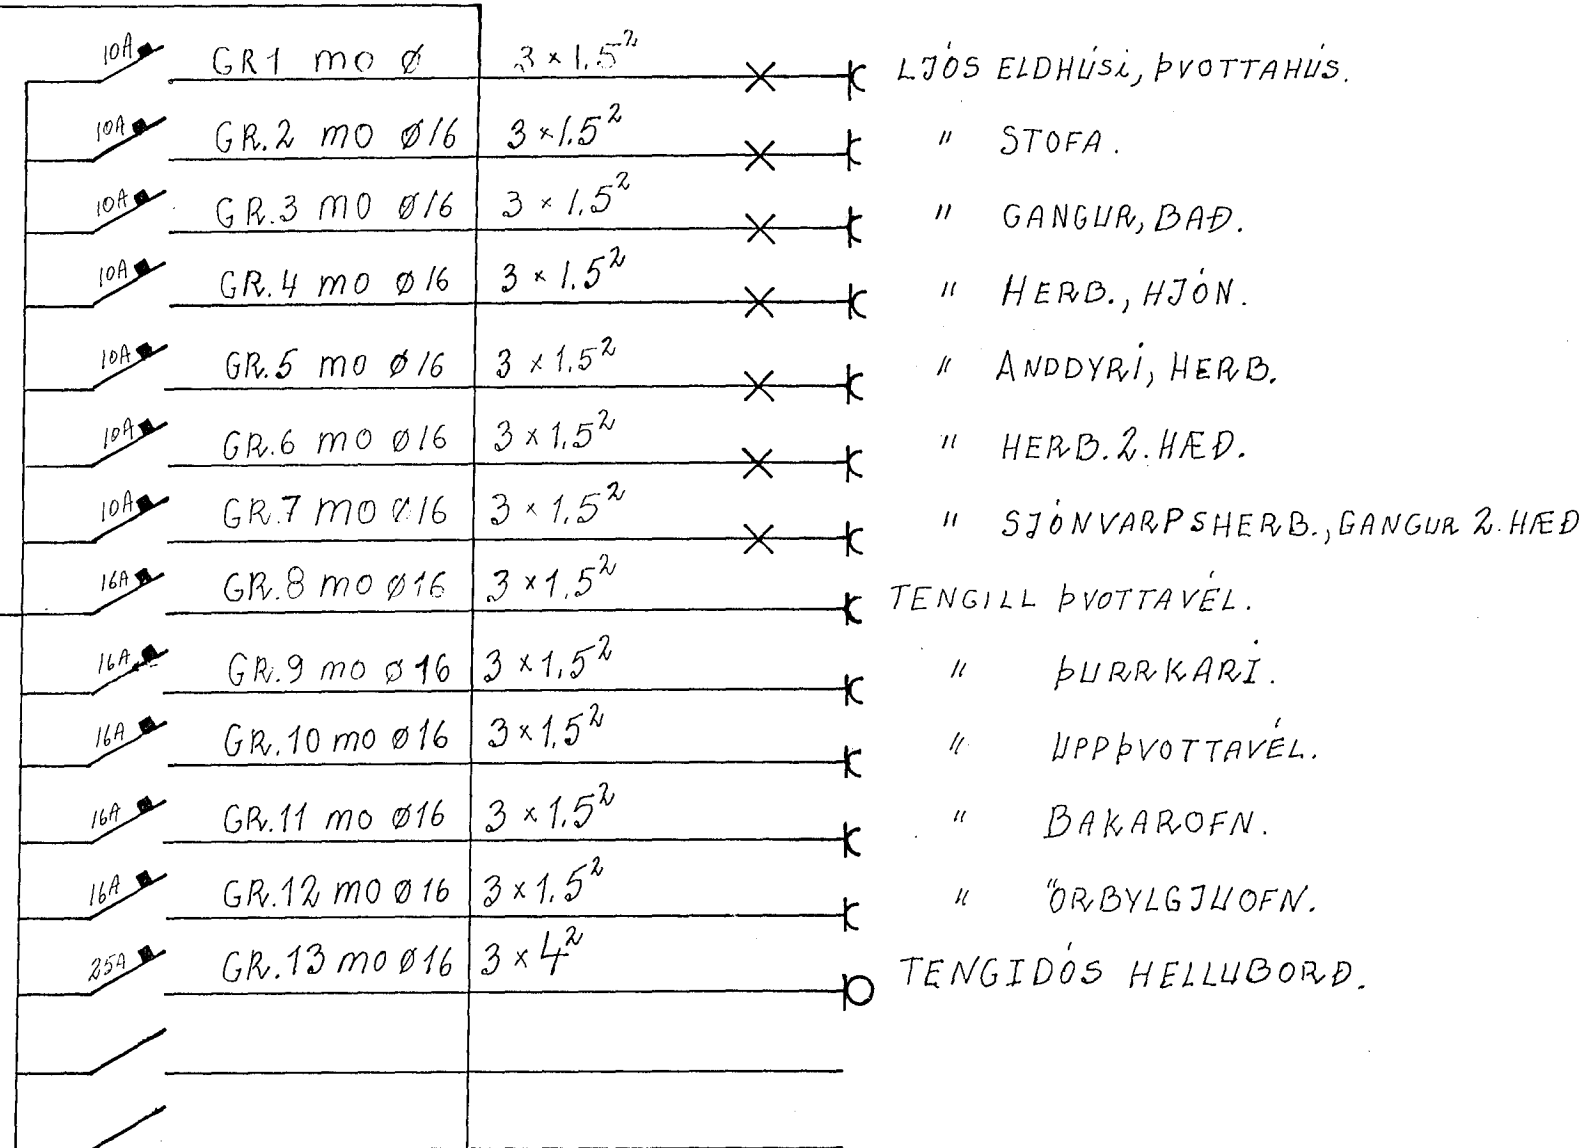 10A GR1 mo ø 3 × 1.5² LJÓS ELDHÚSi, ÞVOTTAHÚS.
10A GR.2 mo ø16 3 × 1.5² " STOFA.
10A GR.3 mo ø16 3 × 1.5² " GANGUR, BAÐ.
10A GR.4 mo ø16 3 × 1.5² " HERB., HJÓN.
10A GR.5 mo ø16 3 × 1.5² " ANDDYRI, HERB.
10A GR.6 mo ø16 3 × 1.5² " HERB. 2. HÆÐ.
10A GR.7 mo ø16 3 × 1.5² " SJÓNVARPSHERB., GANGUR 2. HÆÐ
16A GR.8 mo ø16 3 × 1.5² TENGILL ÞVOTTAVÉL.
16A GR.9 mo ø16 3 × 1.5² " ÞURRKARI.
16A GR.10 mo ø16 3 × 1.5² " UPPÞVOTTAVÉL.
16A GR.11 mo ø16 3 × 1.5² " BAKAROFN.
16A GR.12 mo ø16 3 × 1.5² " ÖRBYLGJUOFN.
25A GR.13 mo ø16 3 × 4² TENGIDÓS HELLUBORÐ.